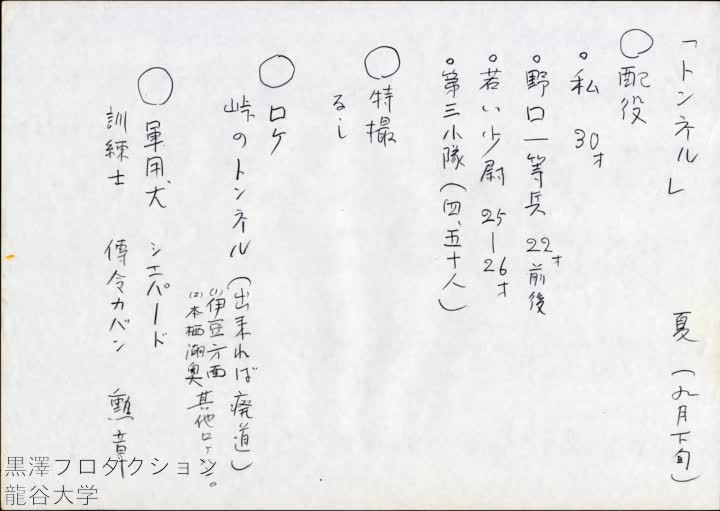 「トンネル」 夏 (九月下旬)
○配役
・私 30才
・野口一等兵 22才前後
・若い少尉 25―26才
・第三小隊(四、五十人)
○特撮
○ロケ
峠のトンネル(出来れば廃道)
(1)伊豆方面
(2)本栖湖奥 其他ロケハン。
○軍用犬 シエパード
訓練士 傳令カバン 勲章
黒澤プロダクション
龍谷大学